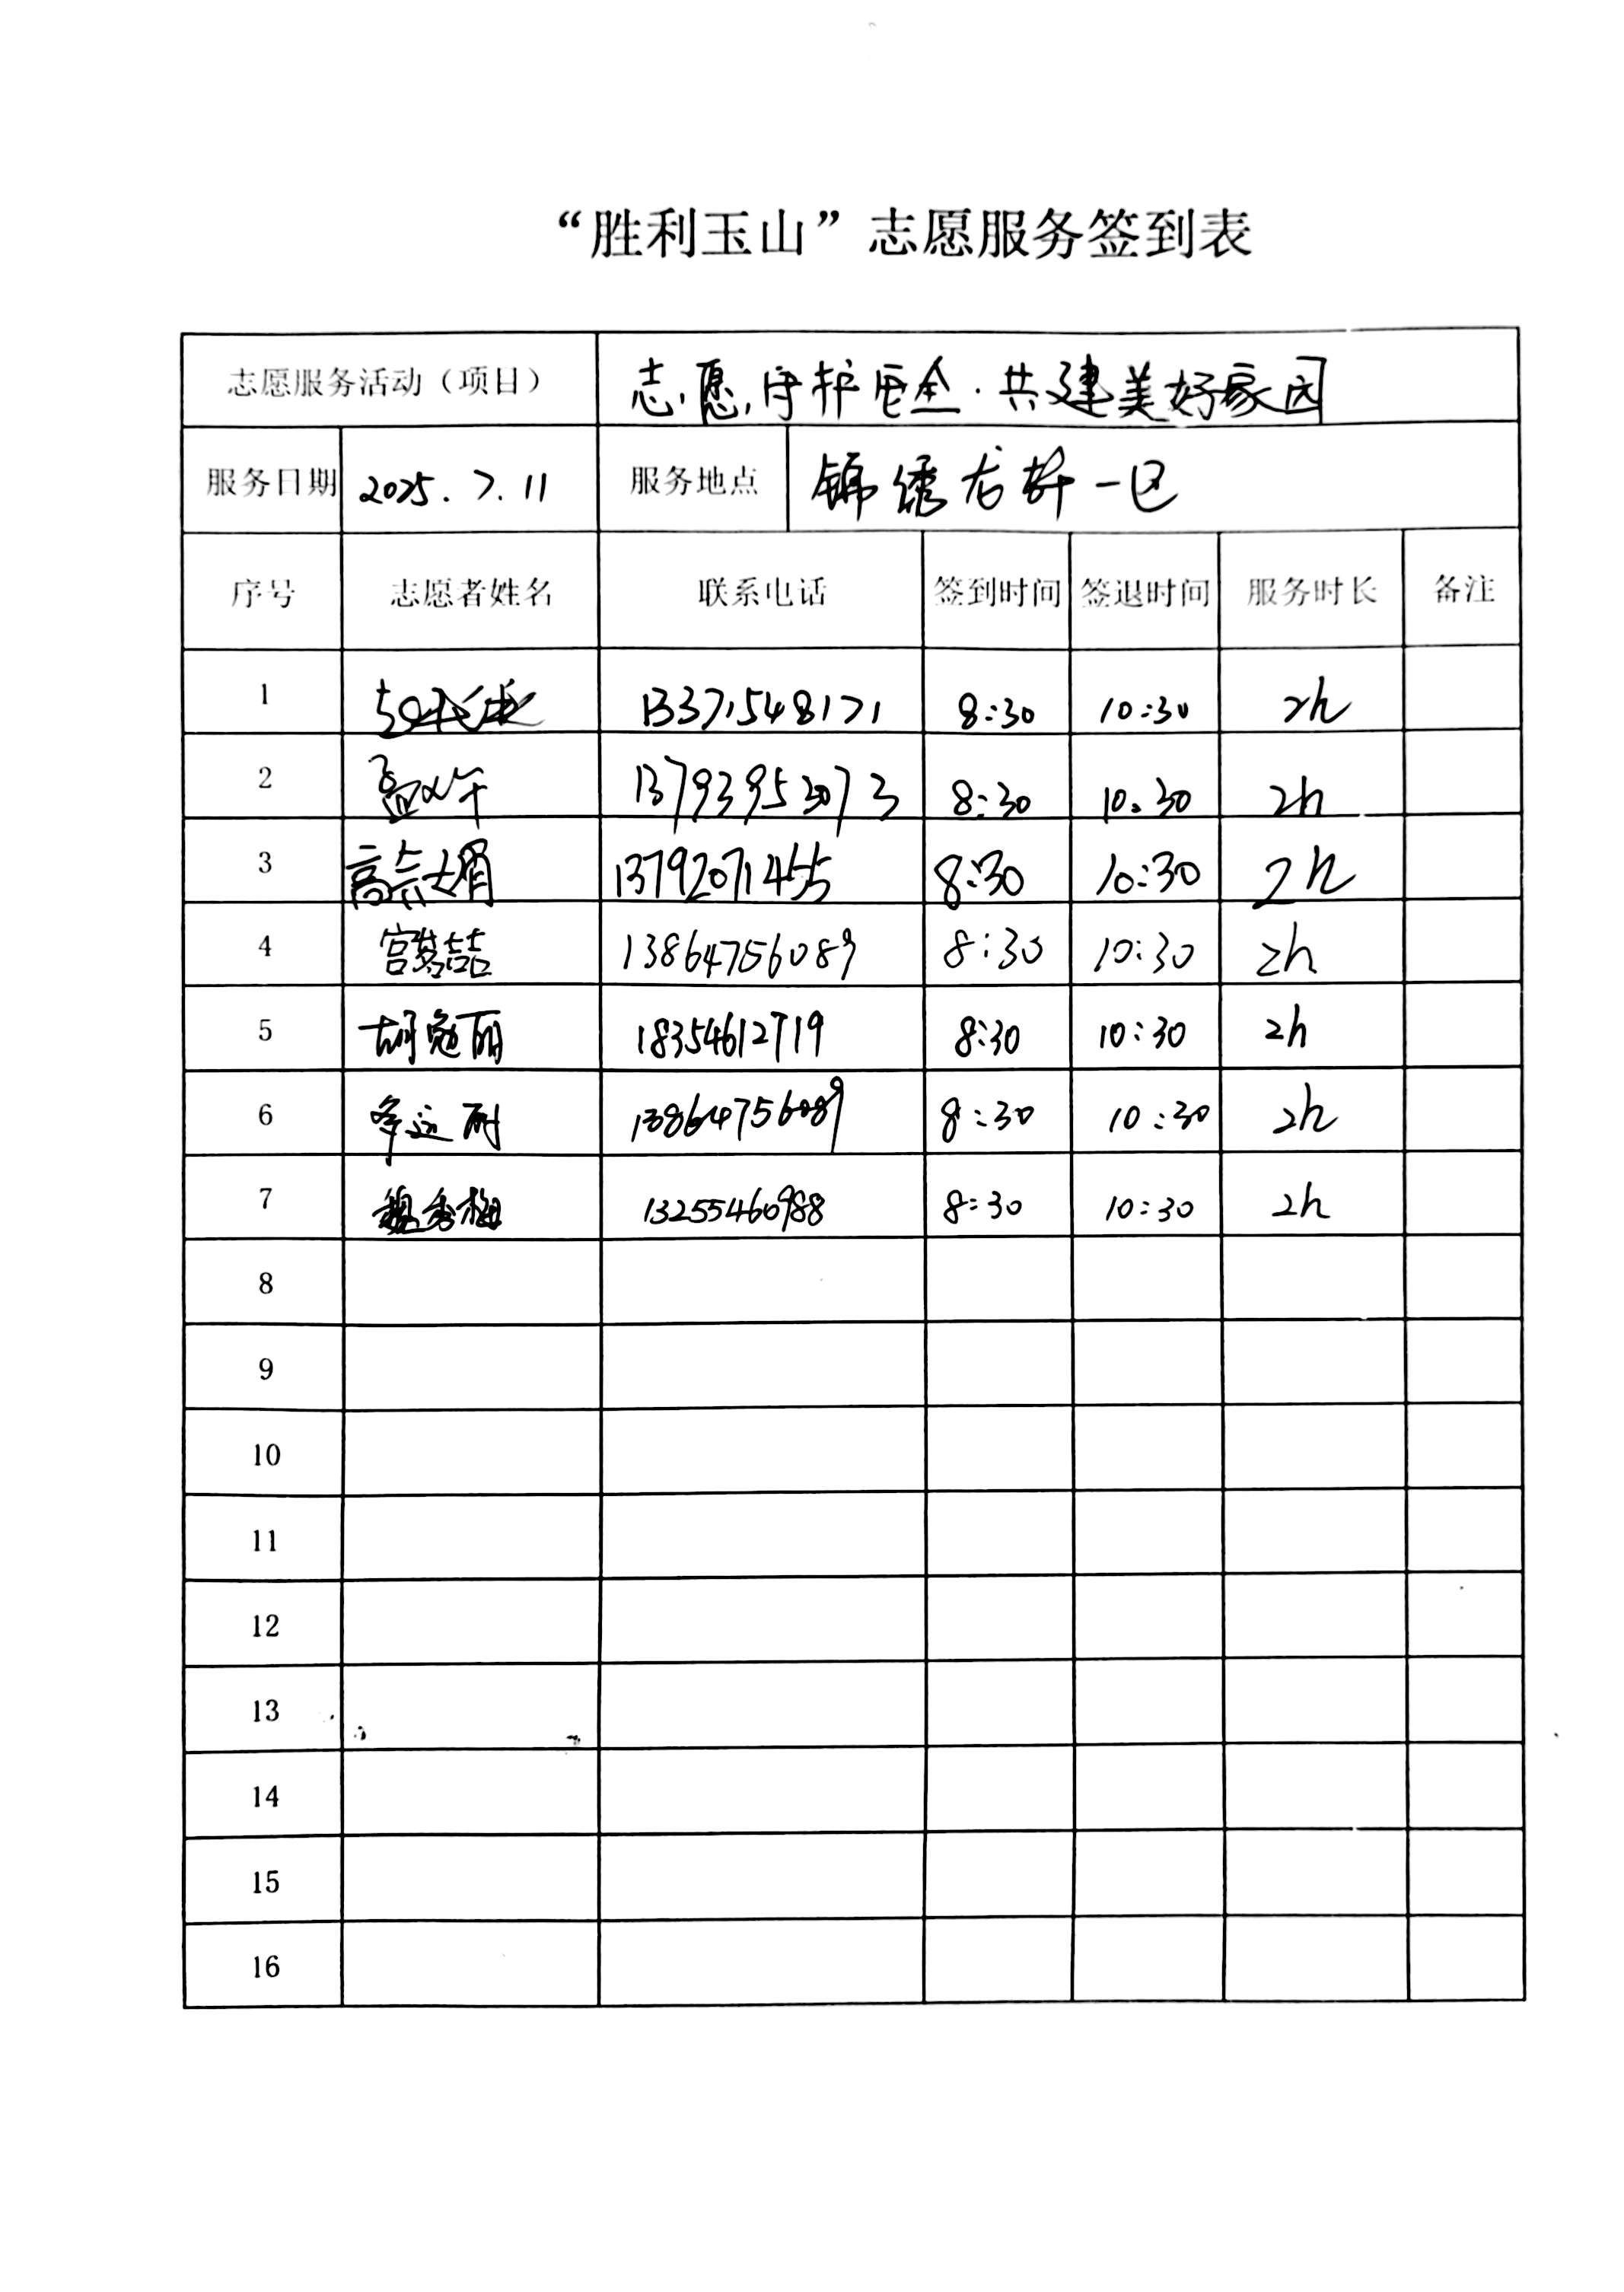 “胜利玉山”志愿服务签到表
志愿服务活动(项目) 志愿守护安全·共建美好家园
服务日期 2025.7.11 服务地点 锦绣龙轩一区
序号 志愿者姓名 联系电话 签到时间 签退时间 服务时长 备注
1 13371548171 8:30 10:30 2h
2 13793953073 8:30 10:30 2h
3 高崇娟 13792071455 8:30 10:30 2h
4 宫梦喆 13864756089 8:30 10:30 2h
5 胡勉丽 18354612719 8:30 10:30 2h
6 13864756089 8:30 10:30 2h
7 魏秀梅 13255460988 8:30 10:30 2h
8
9
10
11
12
13
14
15
16